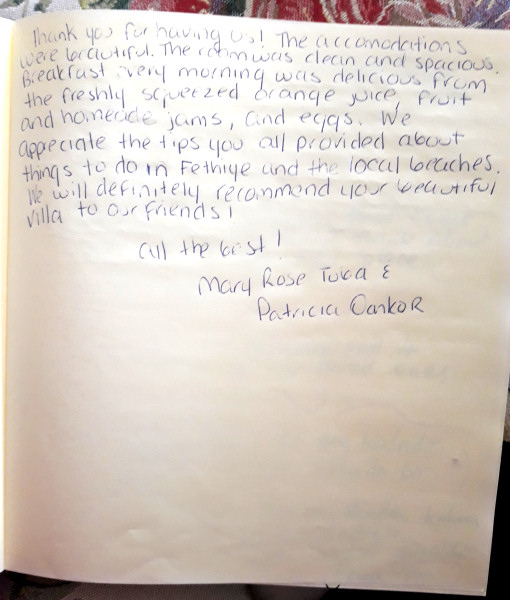 Thank you for having us! The accomodations
were beautiful. The room was clean and spacious.
Breakfast every morning was delicious from
the freshly squeezed orange juice, fruit
and homeade jams, and eggs. We
appreciate the tips you all provided about
things to do in Fethiye and the local beaches.
We will definitely recommend your beautiful
villa to our friends!
All the best!
Mary Rose Tuka &
Patricia Cankor